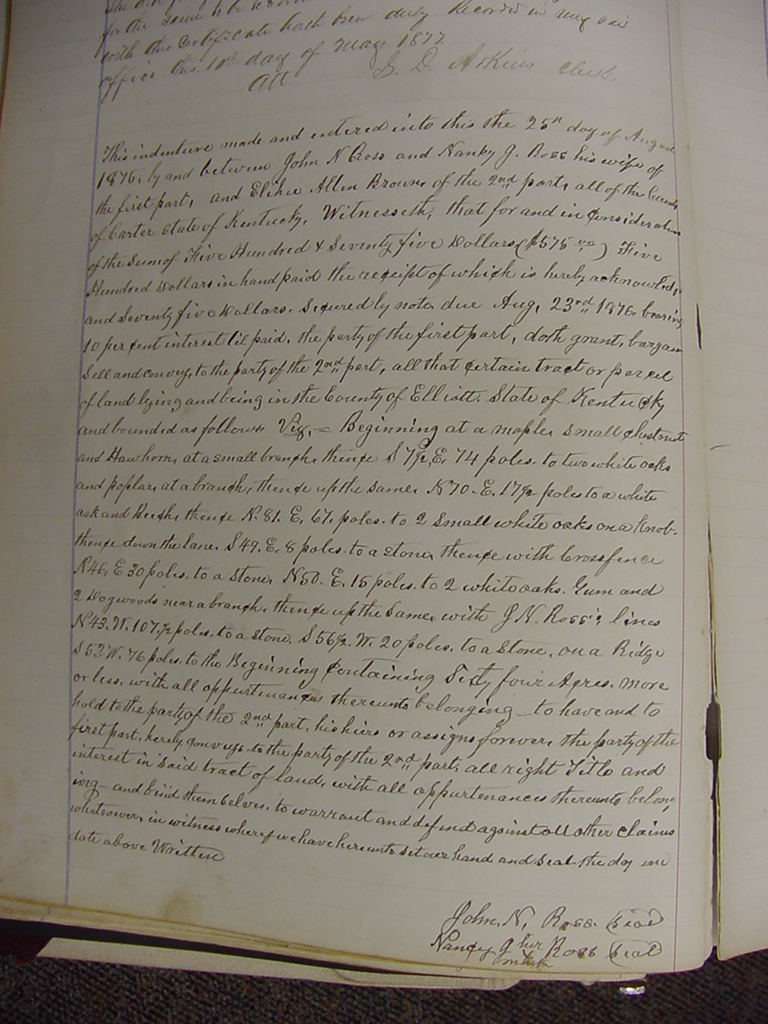 for the same to be
with this Certificate hath been duly Recorded in my
office this 10th day of May 1877.
Att
S. D. Adkins Clerk.
This indenture made and entered into this the 25th day of August
1876, by and between John N Ross and Nanky J. Ross his wife of
the first part, and Elihu Allen Brown, of the 2nd part, all of the County
of Carter State of Kentucky, Witnesseth, that for and in Consideration
of the Sum of Five Hundred & Seventy five Dollars ($575 ) Five
Hundred Dollars in hand paid the receipt of which is hereby acknowledg
and Seventy five Dollars. Secured by note, due Aug, 23rd 1876. bearing
10 per cent interest til paid, the party of the first part, doth grant, bargain
Sell and convey, to the party of the 2nd part, all that certain tract or parcel
of land lying and being in the County of Elliott. State of Kentucky
and bounded as follows Viz, = Beginning at a maple, Small chestnut
and Hawhorn, at a small branch, thence S 7½ E, 74 poles. to two white oaks
and poplar, at a branch, thence up the same, N 70. E. 17½ poles to a white
oak and Beech, thence N. 81. E, 67. poles. to 2 Small white oaks on a Knob.
thence down the lane. S 49. E. 8 poles. to a stone, thence with Crossfence
N 46, E 30 poles. to a Stone, N50. E. 15 poles. to 2 white oaks. Gum and
2 Dogwoods near a branch, thence up the Same, with J. N. Ross's lines
N 43. W. 107½ poles. to a stone. S 56½. W. 20 poles. to a Stone, on a Ridge
S 52 W. 76 poles. to the Beginning Containing Sixty four Acres. more
or less. with all appurtenances thereunto belonging to have and to
hold to the party of the 2nd part, his hiers or assigns forever, the party of the
first part, hereby conveys to the party of the 2nd part, all right Title and
interest in Said tract of land, with all appurtenances thereunto belong
ing and bind themselves. to warrant and defend against all other claims
whatsoever, in witness whereof we have hereunto Set our hand and Seal the day and
date above Written
John. N. Ross. Seal
Nancy J her Ross Seal
mark